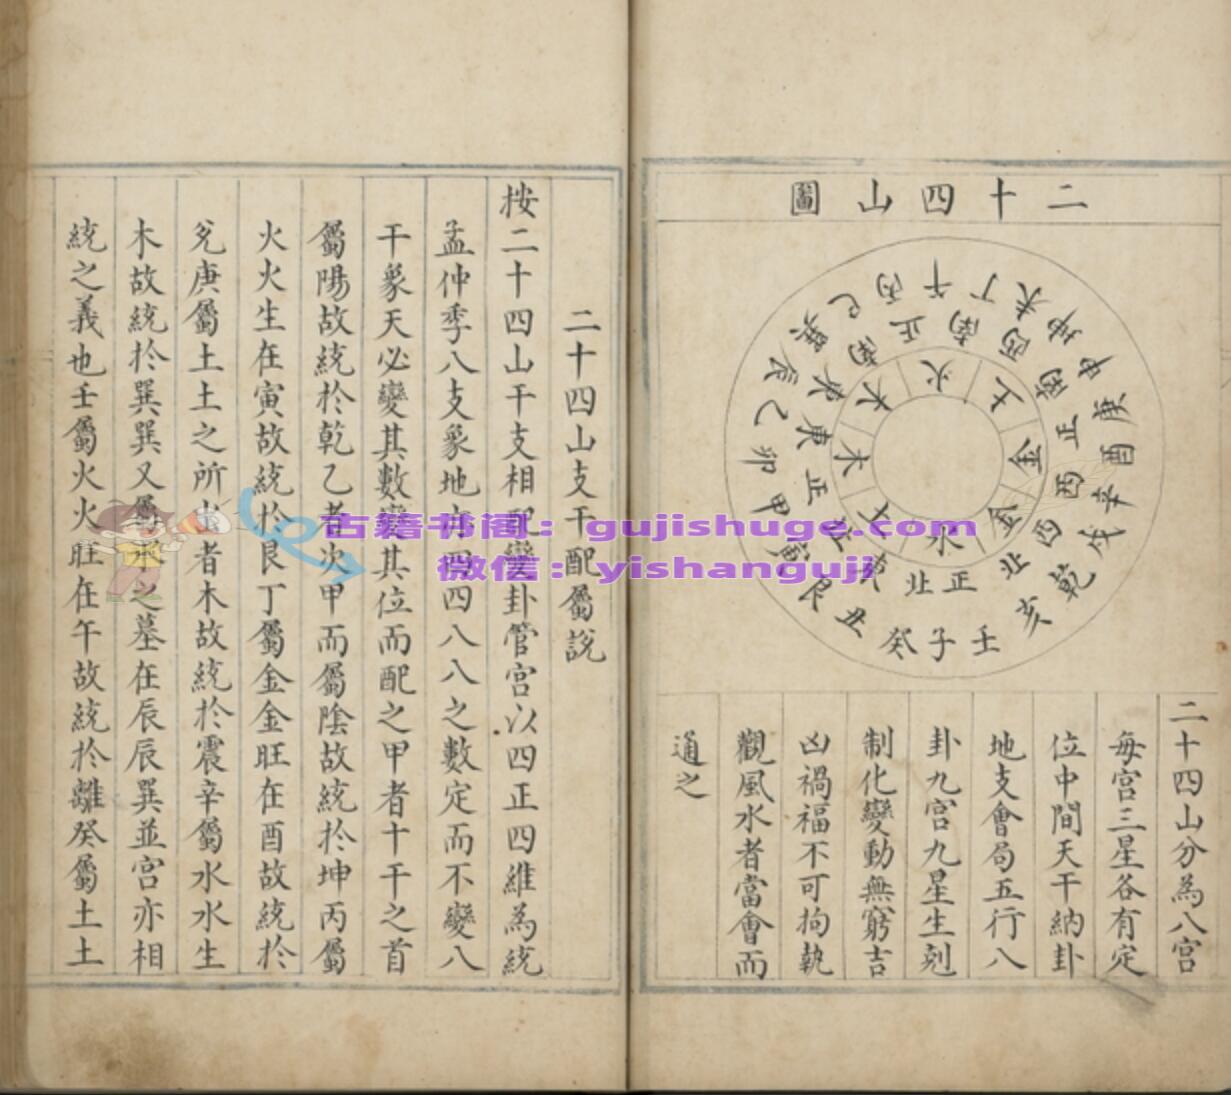 二十四山圖
壬子癸丑艮寅甲卯乙辰巽巳丙午丁未坤申庚酉辛戌乾亥
正北
東
正東
東南
正南
西南
正西
西北
水土木木火土金金
二十四山分為八宮
每宮三星各有定
位中間天干納卦
地支會局五行八
卦九宮九星生剋
制化變動無窮吉
凶禍福不可拘執
觀風水者當會而
通之
二十四山支干配屬說
按二十四山干支相配變卦管宮以四正四維為統
孟仲季八支象地亦四四八八之數定而不變八
干象天必變其數變其位而配之甲者十干之首
屬陽故統於乾乙者次甲而屬陰故統於坤丙屬
火火生在寅故統於艮丁屬金金旺在酉故統於
兌庚屬土土之所出者木故統於震辛屬水水生
木故統於巽巽又屬水之墓在辰辰巽並宮亦相
統之義也壬屬火火旺在午故統於離癸屬土土
古籍书阁：gujishuge.com
微信：yishanguji